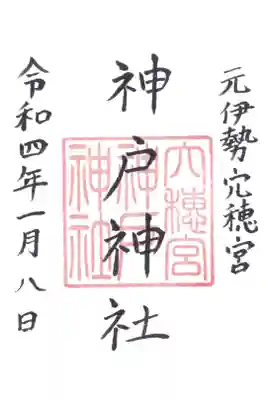 元伊勢穴穂宮
神戸神社
令和四年一月八日
穴穂宮
神戸
神社